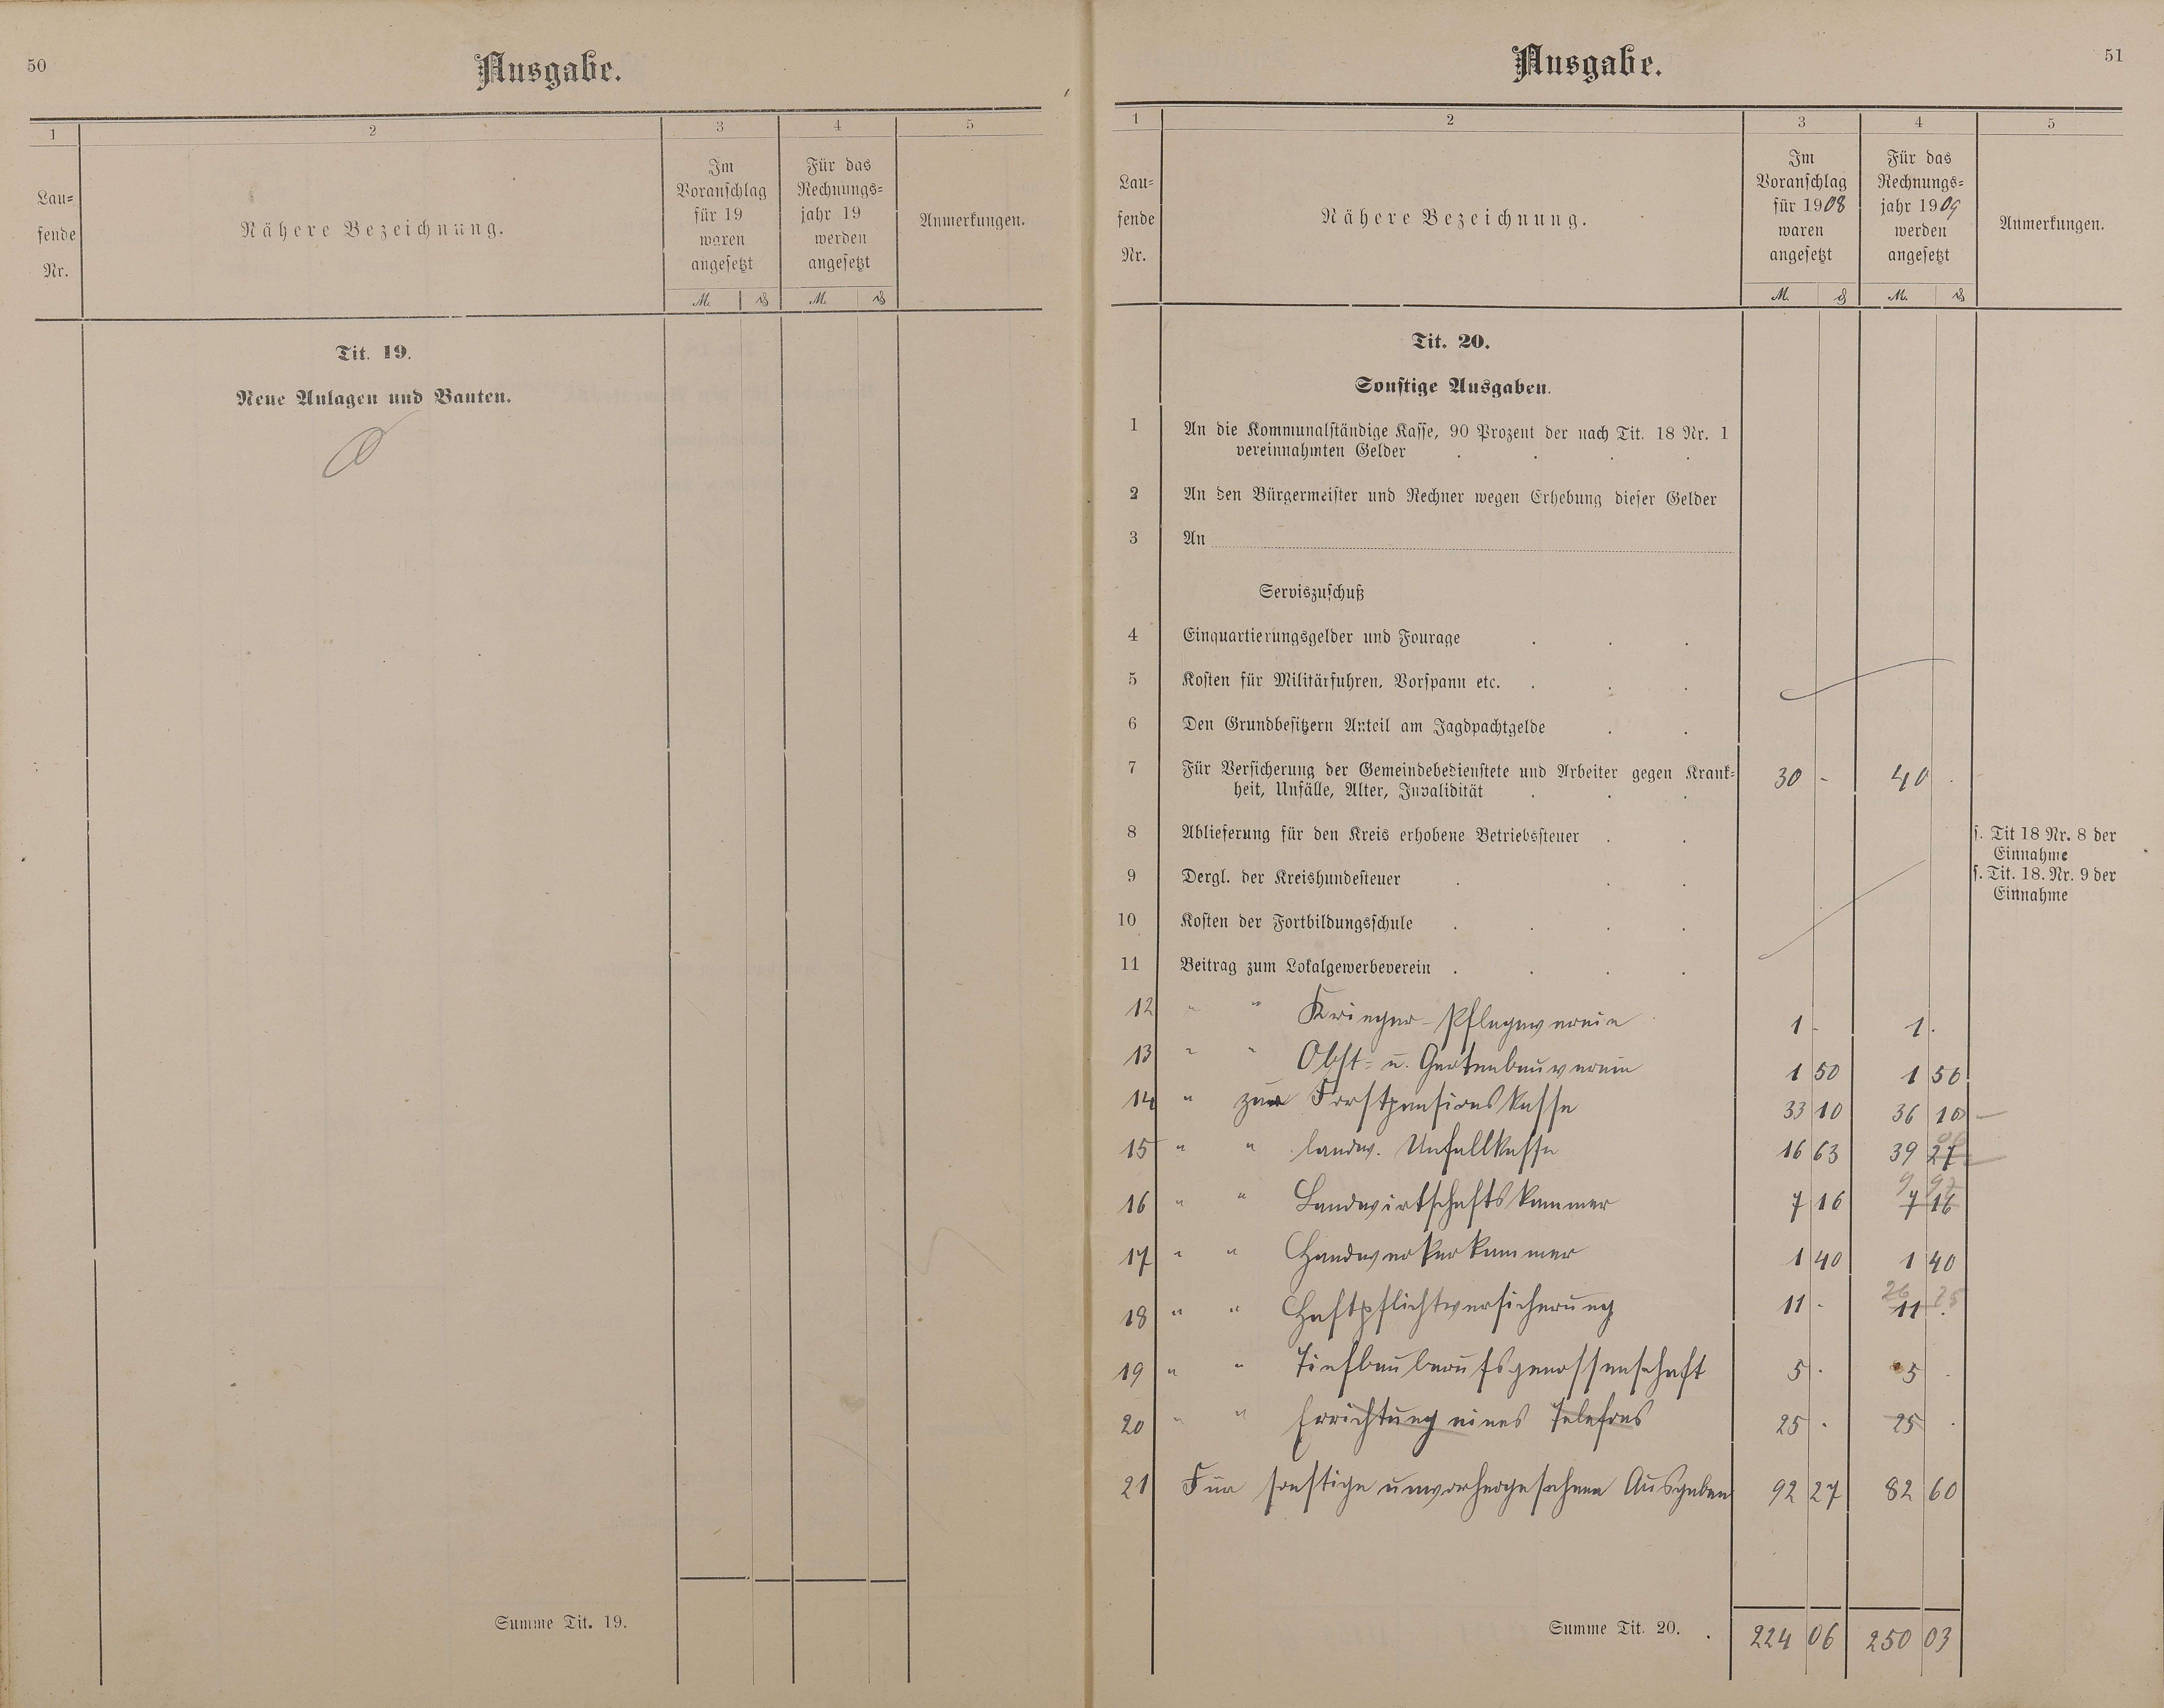 50
Ausgabe.
1 2 3 4 5
Lau-
fende
Nr.
Nähere Bezeichnung.
Im
Voranschlag
für 19
waren
angesetzt
M. ₰
Für das
Rechnungs-
jahr 19
werden
angesetzt
M. ₰
Anmerkungen.
Tit. 19.
Neue Anlagen und Bauten.
Summe Tit. 19.
Ausgabe.
51
1 2 3 4 5
Lau-
fende
Nr.
Nähere Bezeichnung.
Im
Voranschlag
für 1908
waren
angesetzt
M. ₰
Für das
Rechnungs-
jahr 1909
werden
angesetzt
M. ₰
Anmerkungen.
Tit. 20.
Sonstige Ausgaben.
1 An die Kommunalständige Kasse, 90 Prozent der nach Tit. 18 Nr. 1
vereinnahmten Gelder . . . .
2 An den Bürgermeister und Rechner wegen Erhebung dieser Gelder
3 An
Serviszuschuß
4 Einquartierungsgelder und Fourage . . .
5 Kosten für Militärfuhren, Vorspann etc. . . .
6 Den Grundbesitzern Anteil am Jagdpachtgelde . .
7 Für Versicherung der Gemeindebedienstete und Arbeiter gegen Krank- 30 - 40 .
heit, Unfälle, Alter, Invalidität . . .
8 Ablieferung für den Kreis erhobene Betriebssteuer . . s. Tit 18 Nr. 8 der
Einnahme
9 Dergl. der Kreishundesteuer . . . s. Tit. 18. Nr. 9 der
Einnahme
10 Kosten der Fortbildungsschule . . . .
11 Beitrag zum Lokalgewerbeverein . . . .
12 " " Krieger-Pflegeverein 1 - 1 .
13 " " Obst- u. Gartenbauverein 1 50 1 50
14 " zur Forstpensionskasse 33 10 36 10
15 " " landw. Unfallkasse 16 63 39 27
9 97
16 " " Landwirtschaftskammer 7 16 7 16
17 " " Handwerkerkammer 1 40 1 40
26 75
18 " " Haftpflichtversicherung 11 - 11 .
19 " " Tiefbauberufsgenossenschaft 5 . 5 .
20 " " Errichtung eines Telefons 25 . 25 .
21 Für sonstige unvorhergesehene Ausgaben 92 27 82 60
Summe Tit. 20. . 224 06 250 03